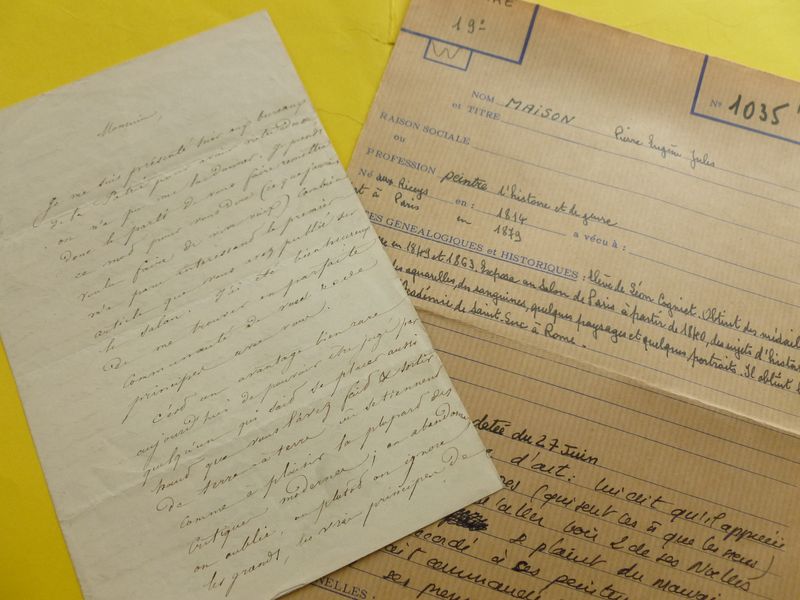 Monsieur,
Je me suis présenté hier aux bureaux
de la Patrie pour avoir votre
on n'a pu me la donner. Je prends
donc le parti de vous faire remettre
ce mot pour vous dire (ce que j'aurais
voulu faire de vive voix) combien
m'a paru intéressant le premier
article que vous avez publié sur
le salon. J'ai été bien heureux
de me trouver en parfaite
communauté de vues et de
principes avec vous.
C'est un avantage bien rare
aujourd'hui de pouvoir être jugé par
quelqu'un qui sait se placer aussi
haut que vous l'avez fait & sortir
de terre-à-terre où se tiennent
comme à plaisir la plupart des
critiques modernes; on abandonne
on oublie, ou plutôt on ignore
les grands, les vrais principes de
RE
19e
W
N° 1035
NOM MAISON Pierre Eugène Jules
et TITRE
RAISON SOCIALE
ou
PROFESSION peintre d'histoire et de genre
Né aux Riceys en : 1814 a vécu à :
rt à Paris en 1879
ES GENEALOGIQUES et HISTORIQUES : élève de Léon Cogniet. Obtint des médail
en 1849 et 1863. Expose au Salon de Paris à partir de 1840, des sujets d'histoir
des aquarelles, des sanguines, quelques paysages et quelques portraits. Il obtint
cadémie de Saint-Luc à Rome.
datée du 27 Juin
d'art : lui dit qu'il apprécie
(qui sont les que les siens)
d'aller voir 2 de ses
se plaint du mauvais
accordé à ses peintures
ait commandé
ses
NELLES :